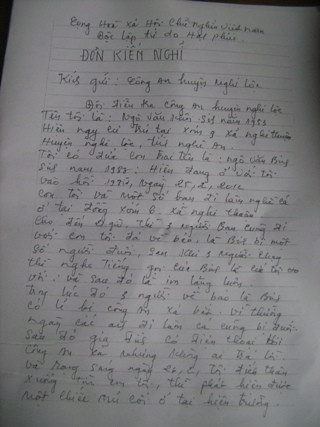 Cộng Hoà Xã Hội Chủ Nghĩa Việt Nam
Độc lập tự do Hạnh Phúc
ĐƠN KIẾN NGHỊ
Kính gửi: Công An huyện Nghi Lộc
Đội điều tra công An huyện nghi lộc
Tên tôi là: Ngô Văn Sinh năm 1953
Hiện nay cư trú tại xóm 9 xã nghi thuận
Huyện nghi lộc, tỉnh nghệ An
Tôi có đứa con trai tên là: ngô Văn Bình
Sinh năm 1987: Hiện đang ở với tôi
vào hồi ngày
con tôi và một số bạn đi làm nghề cá
ở tại đồng xóm 8 xã nghi thuận
Cho đến giờ. Thì 3 người Bạn cùng đi
với con tôi đã về báo, là Bình bị một
số người đuổi, sau khi 3 người chạy
thì nghe tiếng gọi của Bình là cứu tôi với
với. về sau đó là im lặng luôn
trước lúc đó 3 người về báo là Bình
có lẽ bị công An xã bắt. vì thường
ngày các anh đi làm ca cũng bị đuổi.
sau đó gia đình có điện thoại tới
Công An xã nhưng không ai trả lời
và rạng sáng ngày tôi đích thân
xuống tìm con tôi, thì phát hiện được
một chiếc mũ cối ở tại hiện trường.